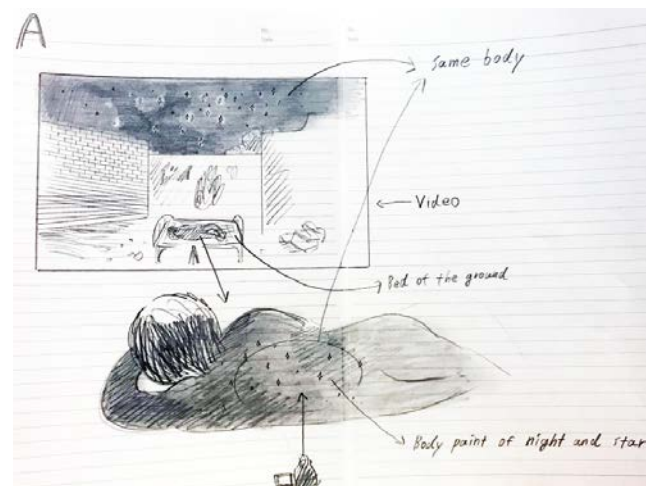 A
Same body
Video
Bed of the ground
Body paint of night and star